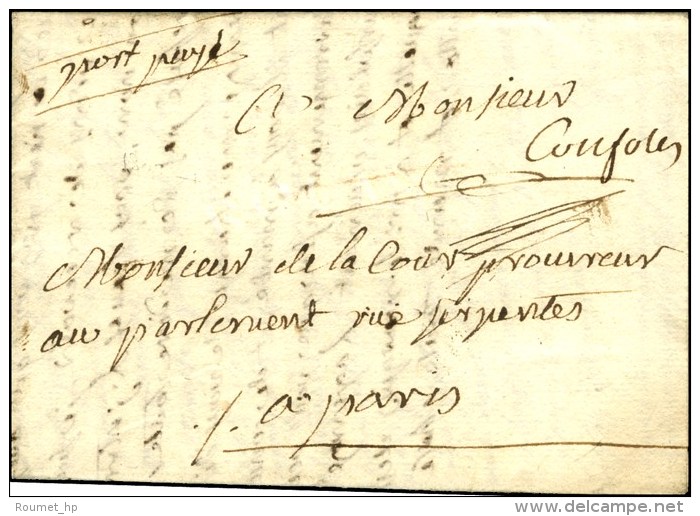 port payé
A Monsieur
Monsieur de la Cour proureur
au parlement rue serpentes
a paris
Roumet_hp
www.delcampe.net